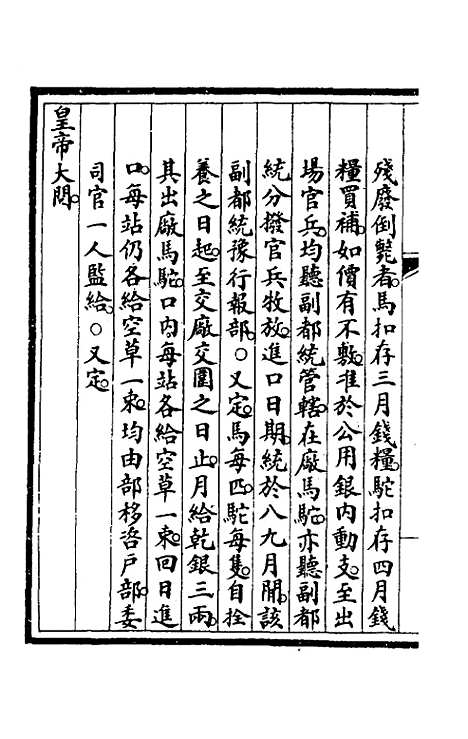 殘廢倒斃者。馬扣存三月錢糧。駝扣存四月錢
糧買補。如價有不敷。准於公用銀內動支。至出
場官兵。均聽副都統管轄。在廠馬駝。亦聽副都
統分撥官兵牧放。進口日期。統於八九月間。該
副都統豫行報部。○又定。馬每匹。駝每隻。自拴
養之日起。至交廠交圈之日止。月給乾銀三兩。
其出廠馬駝。口內每站各給空草一束。回日進
口。每站仍各給空草一束。均由部移咨戶部。委
司官一人監給。○又定。
皇帝大閱。